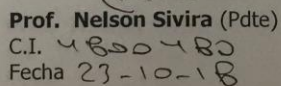 Prof. Nelson Sivira (Pdte)
C.I. 4800480
Fecha 23-10-18